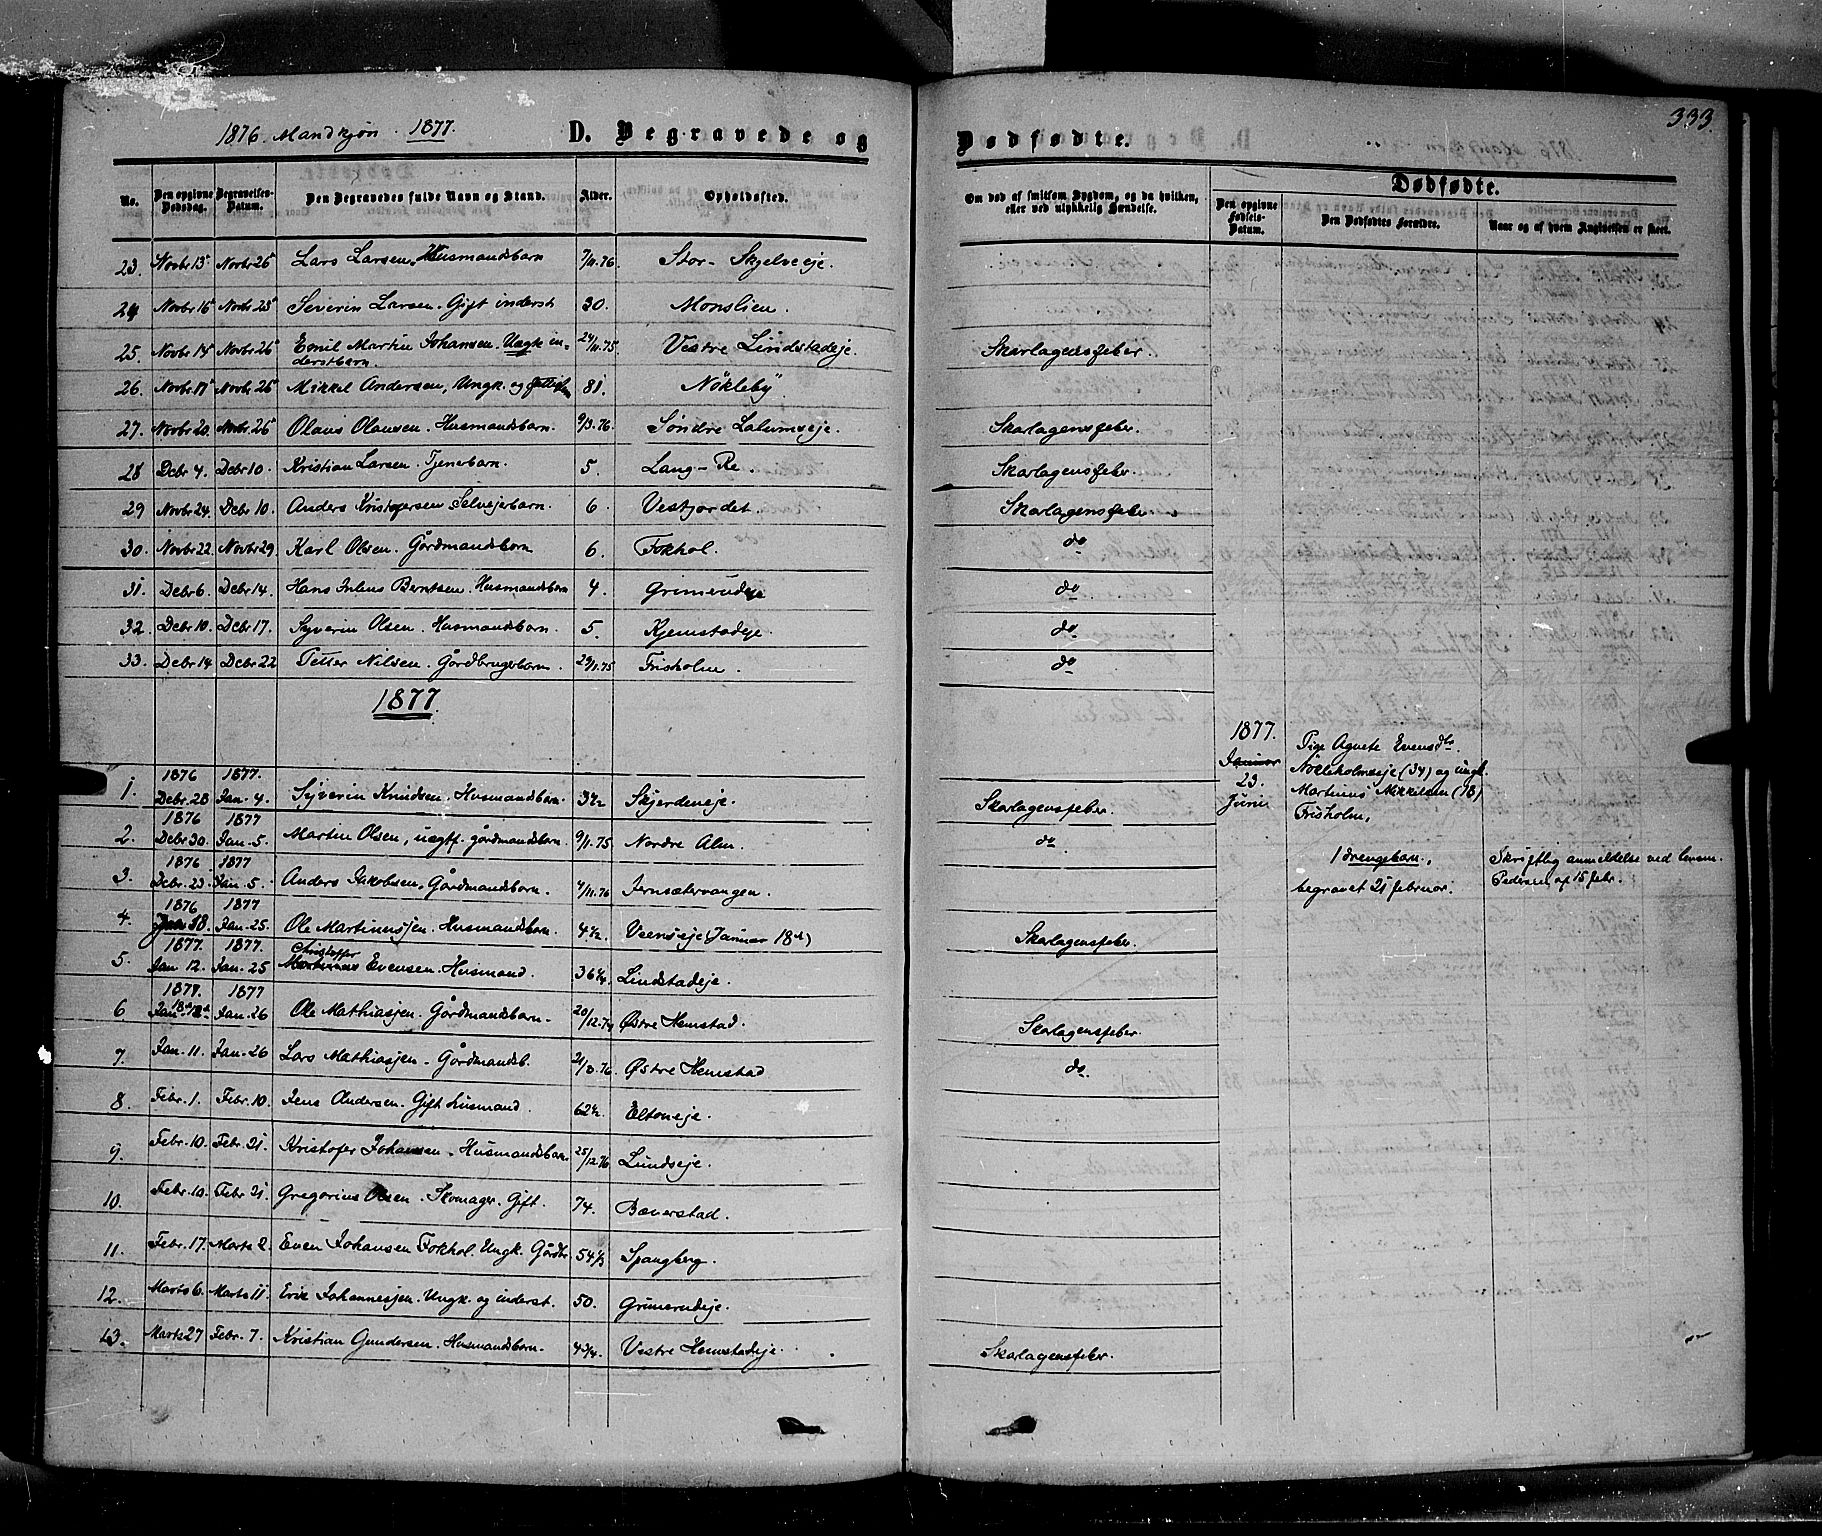 333.
1876. Mandkjøn. 1877. D. Begravede og Dødfødte.
Dødfødte.
No. Den opgivne Dødsdag. Begravelses-Datum. Den Begravedes fulde Navn og Stand. Alder. Opholdssted. Om død af smitsom Sygdom, og da hvilken, eller ved ulykkelig Hændelse. Den opgivne Fødsels-Datum. Den Dødfødtes Forældre. Naar og af hvem Angivelsen er skeet.
23. Novbr 13 Novbr 26 Lars Larsen, Husmandsbarn 7/11.76 Stor-Skjelveeje.
24 Novbr 16 Novbr 23 Severin Larsen. Gift inderst 30. Monslien.
25. Novbr 14 Novbr 26 Emil Martin Johansen. Uægt in- 24/11.75 Vestre Lindstadeje. Skarlagensfeber.
derstbarn.
26. Novbr 17 Novbr 26 Mikkel Andersen, Ungk. og 81. Nökleby
27. Novbr 20. Novbr 26 Olaus Olausen. Husmandsbarn. 9/3.76. Søndre Lalumseje. Skarlagensfeber.
28 Debr 4. Debr 10. Kristian Larsen. Tjenerbarn. 5. Lang-Re. Skarlagensfeber.
29 Novbr 24. Debr 10. Anders Kristofersen Selvejerbarn. 6. Vestjordet. Skarlagensfeber.
30. Novbr 22. Novbr 29. Karl Olsen. Gårdmandsbarn 6. Fokhol. do
31. Debr 6. Debr 14. Hans Julius Berntsen. Husmandsbarn 4. Grimerudeje do
32. Debr 10. Debr 17. Syverin Olsen. Husmandsbarn. 5. Kjemstadeje. do
33. Debr 14 Debr 22 Petter Nilsen. Gårdbrugerbarn. 29/11.75 Frisholm. do
1877.
1877.
Januar
23.
Juni
Pige Agnete Evensdtr.
Nökleholmseje (34) og ungk.
Martinus Mikkelsen (18)
Frisholm,
1876 1877.
1. Debr. 28 Jan. 4. Syverin Knudsen. Husmandsbarn. 3½ Skjerdeneje. Skarlagensfeber.
1876 1877
2. Debr 30. Jan. 5. Martin Olsen, uægtf. gårdmandsbarn. 9/1.75 Nordre Alm do.
1876 1877
3. Debr. 23. Jan. 5. Anders Jakobsen, Gårdmandsbarn. 4/11.76 Jernsætervangen.
1 drengebarn, Skriftlig anmeldelse ved lensm.
begravet 21 februar. Pedersen af 15 febr.
1876 1877
4. Jan. 18. Jan. 25. Ole Martinussen. Husmandsbarn. 4½. Veenseje (Januar 18de) Skarlagensfeber.
1877. 1877. Christoffer
5. Jan 12. Jan. 25 Evensen. Husmand. 36¼. Lindstadeje.
1877. 1877
6 Jan. 18de Jan. 26 Ole Mathiassen. Gårdmandsbarn. 20/12.74 Østre Hemstad. Skarlagensfeber.
7. Jan. 11. Jan. 26 Lars Mathiassen. Gårdmandsb. 21/3.76. Østre Hemstad do.
8. Febr. 1. Febr. 10. Jens Andersen. Gift husmand. 62½. Eltoneje.
9. Febr. 10. Febr. 21. Kristofer Johansen. Husmandsbarn. 25/12.76 Lundseje.
10. Febr. 10. Febr 21. Gregorius Olsen. Skomager. Gift. 74. Bæverstad.
11. Febr. 17. Marts 2. Even Johansen Fokhol. Ungk. Gårdbr. 54⅓ Spangberg.
12. Marts 6. Marts 11. Erik Johannessen. Ungk. og inderst. 50. Grimerudeje.
13. Marts 27 Febr. 7. Kristian Gundersen. Husmandsbarn. 4¾. Vestre Hemstadeje. Skarlagensfeber.